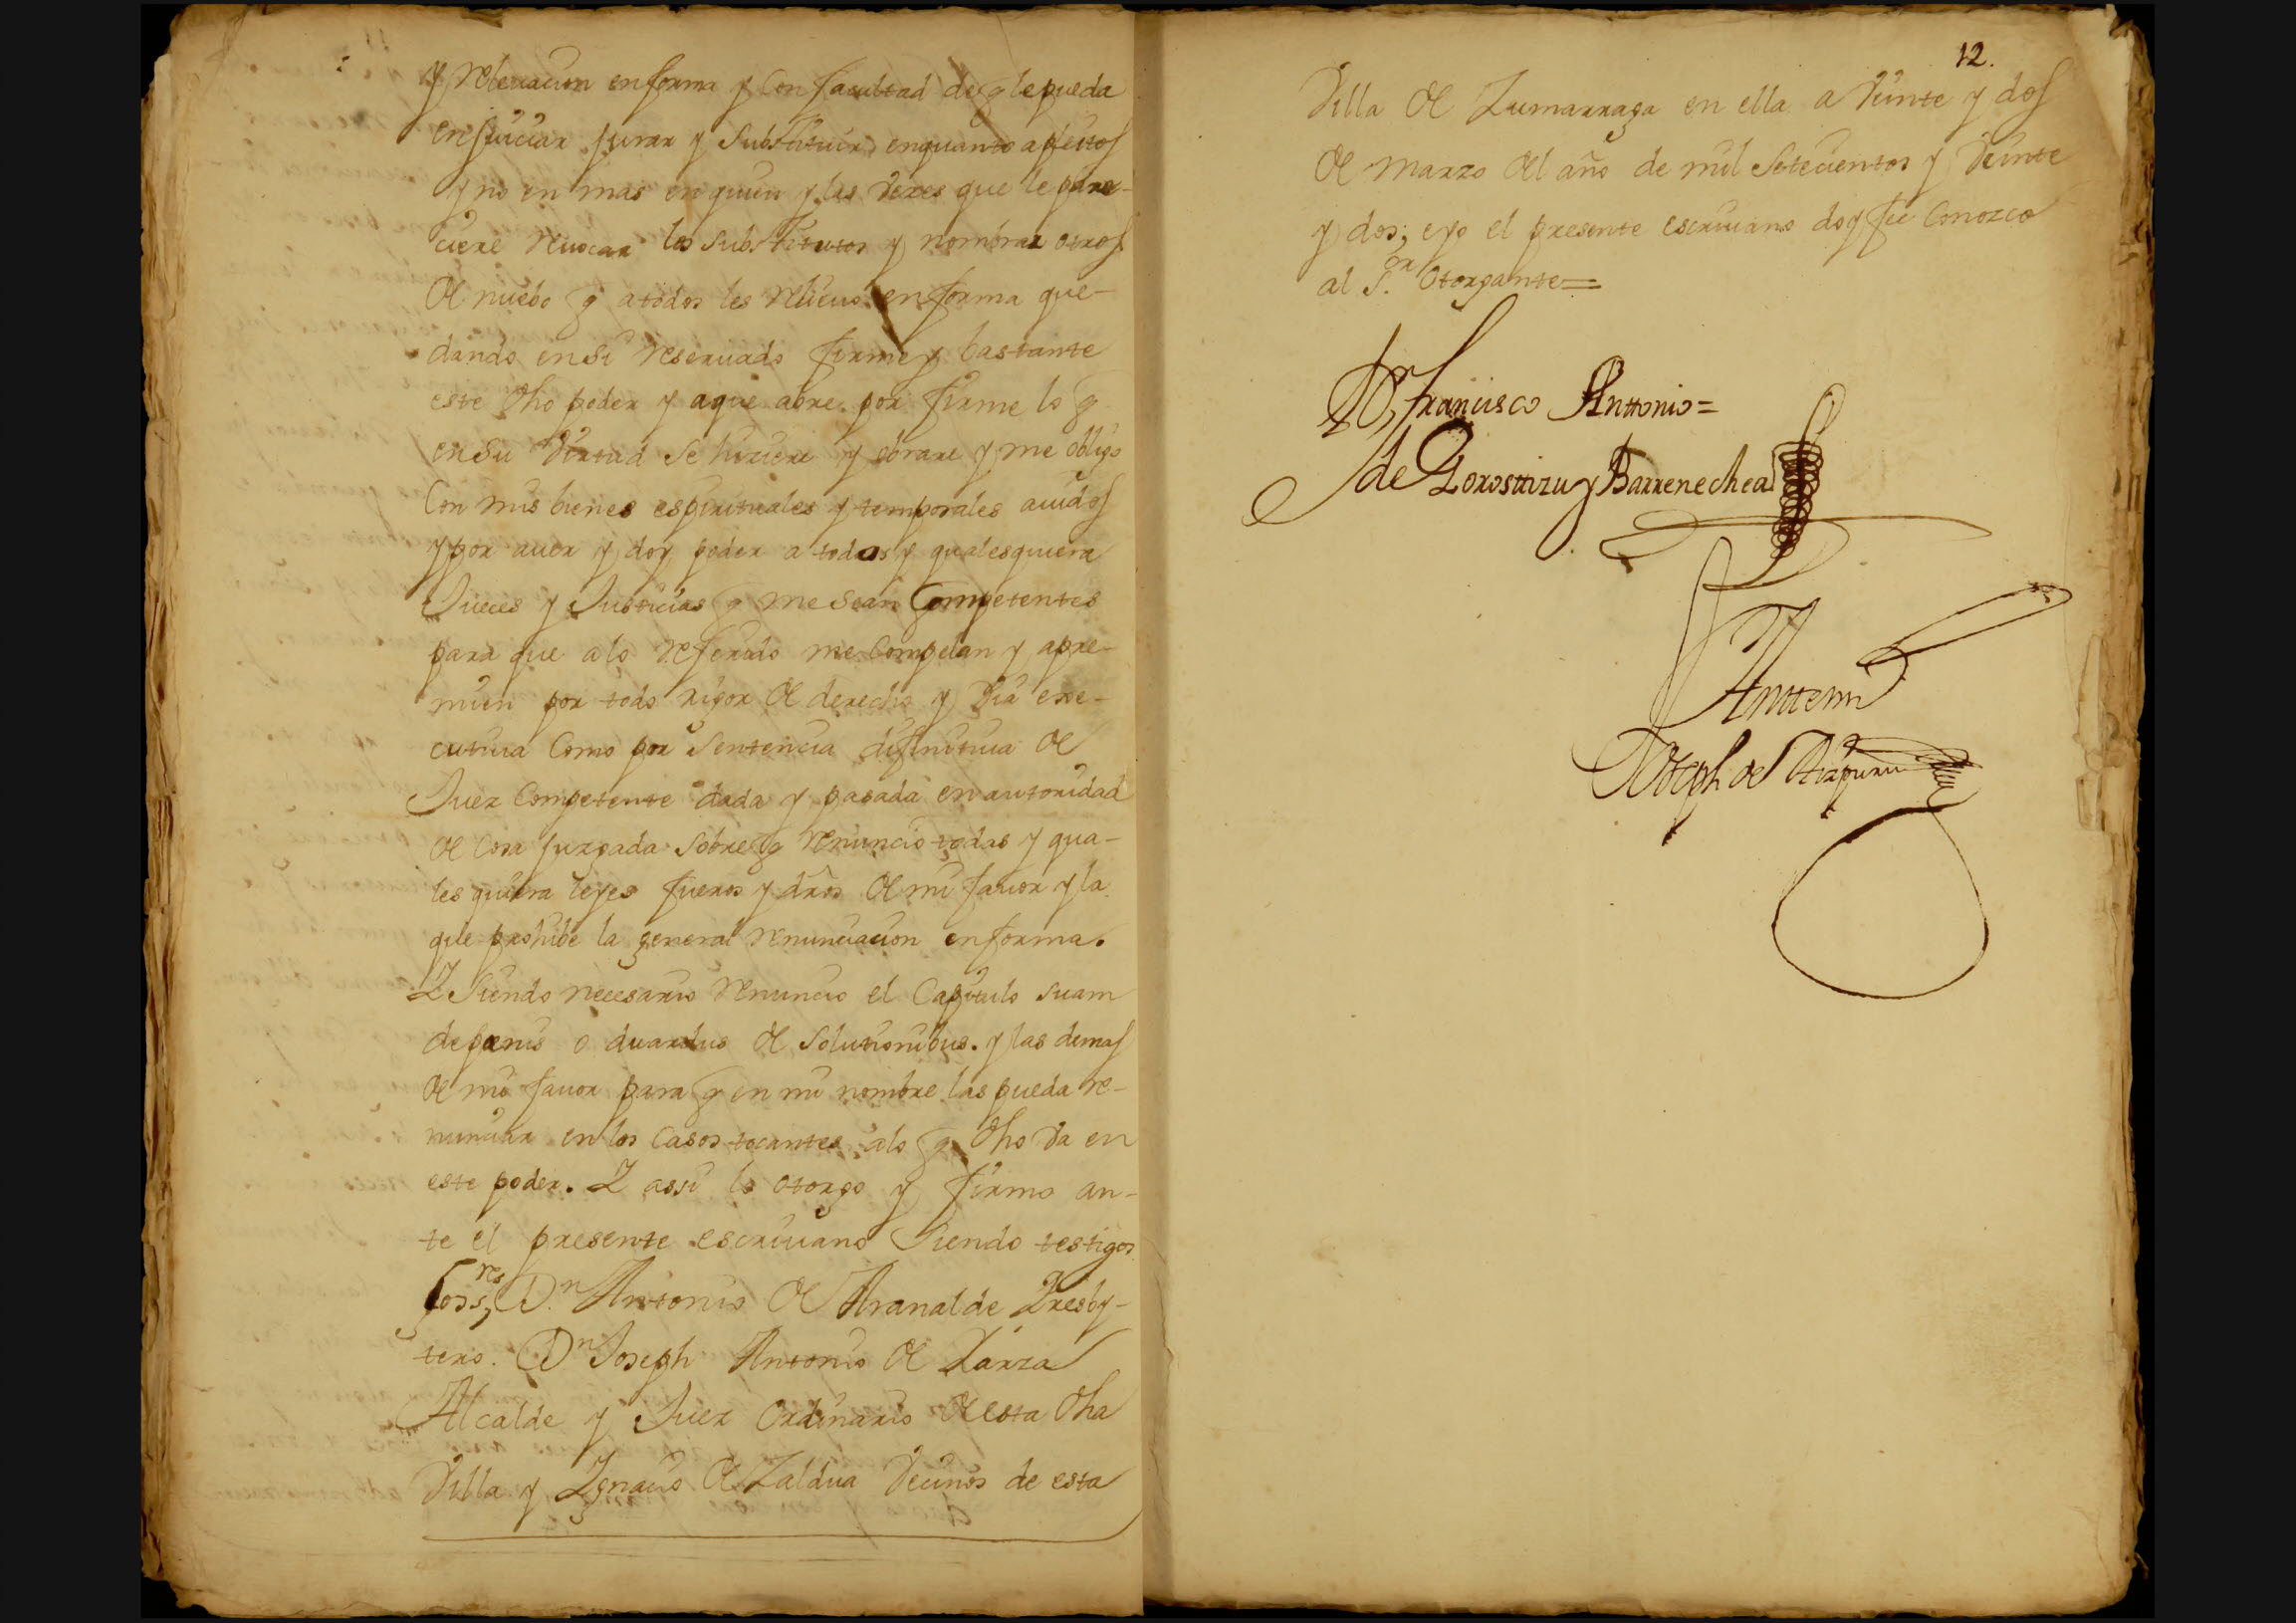 y relevacion en forma y con facultad de q le pueda
enjuiciar jurar y substituir en quanto a pleitos
y no en mas en quien y las veces que le pare-
ciere revocar los substitutos y nombrar otros
de nuebo q a todos les relievo en forma que-
dando en si reservado firme y bastante
este dho poder y a que abre por firme lo q
en su virtud se hiziere y obrare y me obligo
con mis bienes espirituales y temporales auidos
y por auer y doy poder a todos y qualesquiera
Jueces y Justicias q me sean Competentes
para que a lo referido me compelan y apre-
mien por todo rigor de derecho y via exe-
cutiva como por sentencia difinitiua de
Juez Competente dada y pasada en autoridad
de cosa juzgada sobre q renuncio todas y qua-
les quiera leyes fueros y dros de mi fauor y la
que prohibe la general renunciacion en forma.
Y siendo necesario renuncio el Capitulo suam
de penis o duardus de solutionibus. y las demas
de mi fauor para q en mi nombre las pueda re-
nunciar en los casos tocantes a lo q dho va en
este poder. Y assi lo otorgo y firmo an-
te el presente escriuano siendo testigos
D.n Antonio de Aranalde Presby-
tero. Dn Joseph Antonio de Zarza
Alcalde y Juez ordinario de esta dha
Villa y Ygnacio de Zaldua Vecinos de esta
12.
Villa de Zumarraga en ella a veinte y dos
de marzo del año de mil setecientos y veinte
y dos, e yo el presente escriuano doy fee conozco
al S.or otorgante=
Dn Francisco Anttonio=
de Gorostizu y Barrenechea
Anttemi
Joseph de Aizpuru